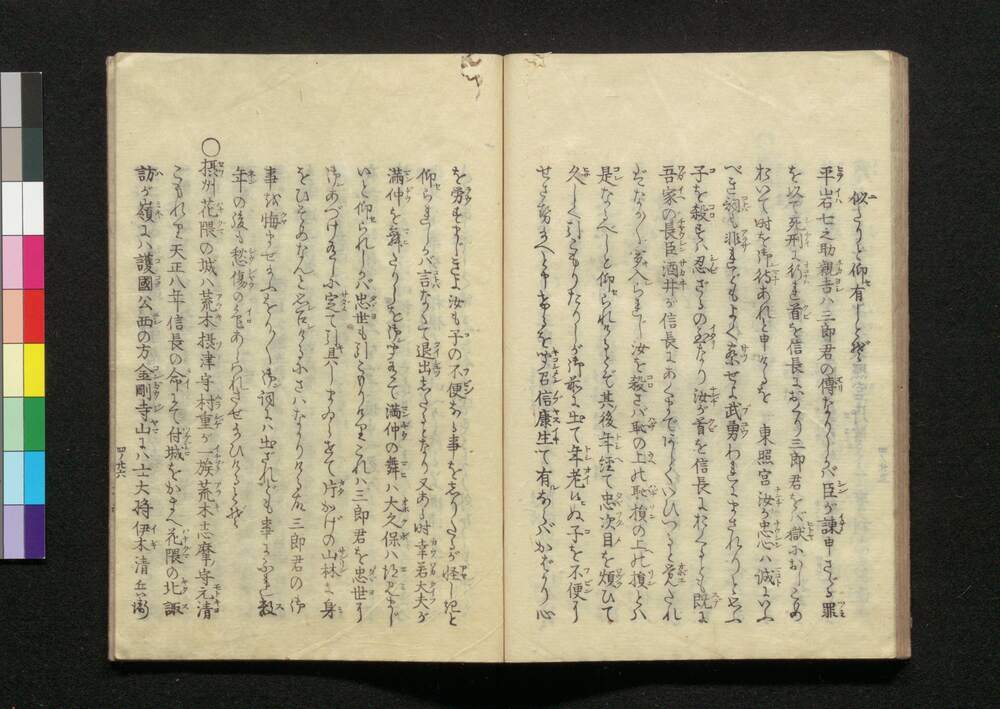 似たりと仰有しとぞ
平岩七之助親吉ハ三郎君の傳なりしかバ臣が諌申さゞる罪
を以て死刑に行れ首を信長におくり三郎君をバ獄におしこめ
おいて時を御待あれと申けるを 東照宮汝が忠心ハ誠にいふ
べき詞も非れどもよく案ぜよ武勇われにまされりと思ふ
子を殺すハ忍ざるの至なり汝が首を信長におくるとも既に
吾家の長臣酒井が信長にあくまで
是なるべしと仰られけるとぞ其後年経て忠次目を煩ひて
久しく引こもりたりしが御前に出て年老いぬ子を不便に
せさせ給へと申けるを聞召信康生て有ならバかばかり心
を労すまじきよ汝も子の不便なる事をしりたるが怪しきと
仰られしかバ言なくて退出したるとなり又ある時幸若大夫が
満仲を舞たりしを御覧有て満仲の舞ハ大久保ハ
いと仰られしかバ忠世も引こもりけりこれハ三郎君を忠世に
御あづけ有しに定て引具しまゐらせて片かげの山林に身
をひそめなんと思召けるにさハなかりける故三郎君の御
事を悔ませ給ふをかく御詞にハ出されども事にふれ数
年の後も愁傷の色あらられさせ給ひけるとぞ
○摂州花隈の城ハ荒木摂津守村重が一族荒木志摩守元清
こもれり天正八年信長の命にて付城をかまへ花隈の北諏
訪が嶺にハ護國公西の方金剛寺山にハ士大将伊木清兵衛